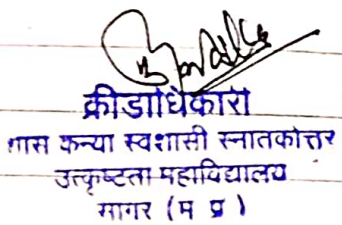 क्रीडाधिकारी
शास कन्या स्वशासी स्नातकोत्तर
उत्कृष्टता महाविद्यालय
सागर (म प्र )